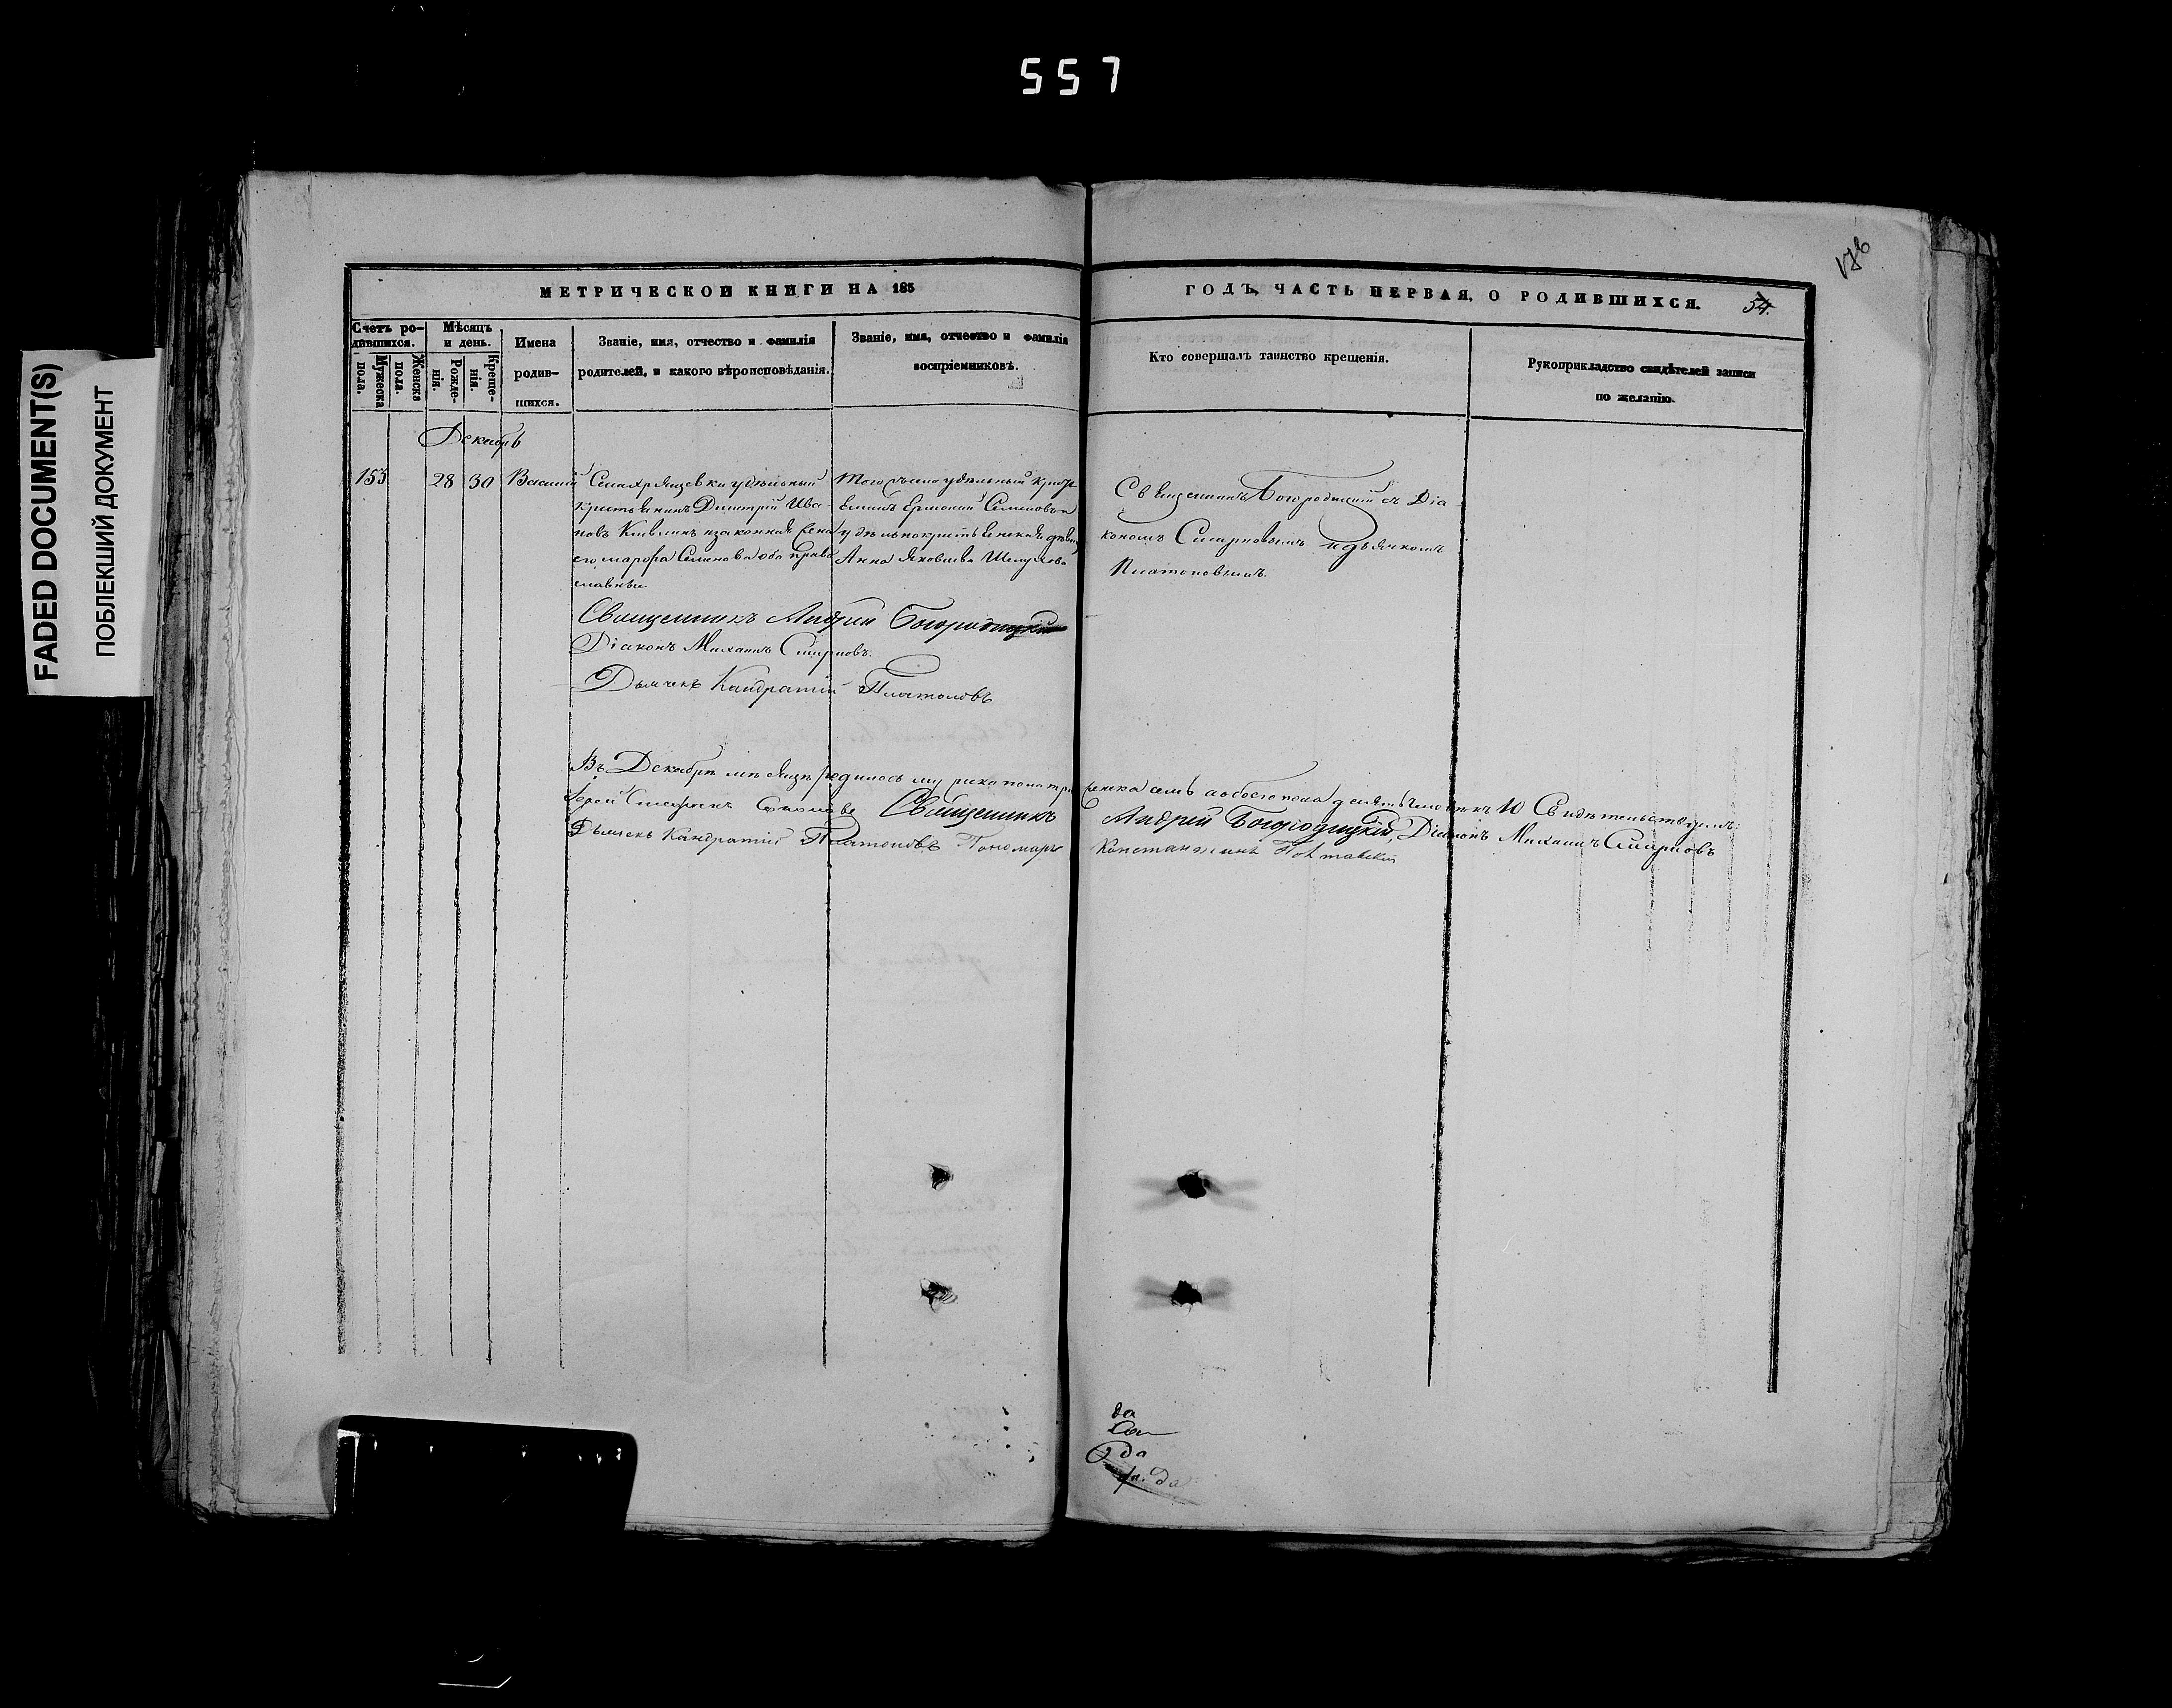 557
FADED DOCUMENT(S)
ПОБЛЕКШИЙ ДОКУМЕНТ
176
МЕТРИЧЕСКОЙ КНИГИ НА 185
ГОДЪ, ЧАСТЬ ПЕРВАЯ, О РОДИВШИХСЯ.
54.
Счетъ ро-
дившихся.
Мужеска
пола.
Женска
пола.
Мѣсяцъ
и день.
Рожде-
нія.
Креще-
нія.
Имена
родив-
шихся.
Званіе, имя, отчество и фамилія
родителей, и какого вѣроисповѣданія.
Званіе, имя, отчество и фамилія
воспріемниковъ.
Кто совершалъ таинство крещенія.
Рукоприкладство свидѣтелей записи
по желанію.
Декабрь
153
28
30
Василий
удѣльный
крестьянинъ Димитрій Ива-
новъ законная жена
его Марфа Семенова оба право
славные
удѣльный
Семеновъ и
Анна Яковлева
Священникъ Богородицкій съ Діа
кономъ Смирновымъ и дьячкомъ
Платоновымъ.
Священникъ Андрей Богородицкій
Діаконъ Михаилъ Смирновъ.
Дьячекъ Кандратій Платоновъ
Въ Декабрѣ мѣсяцѣ родилось мужеска пола три женска семь а обоего пола десять человѣкъ 10
Священникъ Андрей Богородицкій, Діаконъ Михаилъ Смирновъ
Дьячекъ Кандратій Платоновъ Пономарь Константинъ
да
да
да